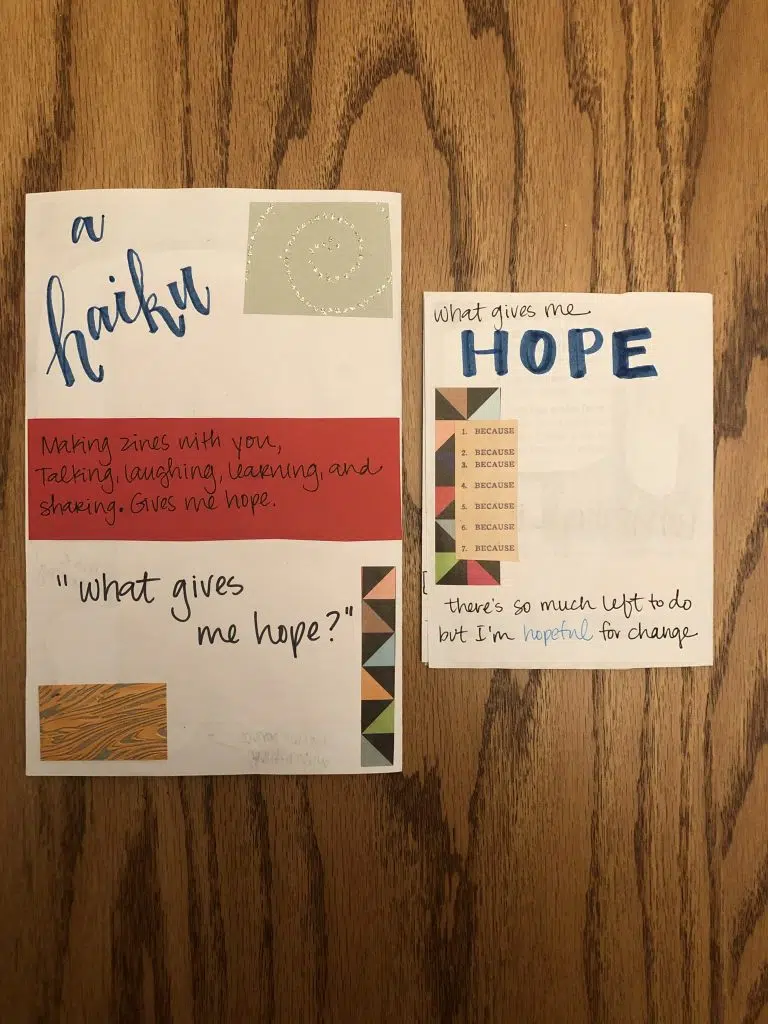 a
haiku
Making zines with you,
Talking, laughing, learning, and
sharing. Gives me hope.
"what gives
me hope?"
what gives me
HOPE
1. BECAUSE
2. BECAUSE
3. BECAUSE
4. BECAUSE
5. BECAUSE
6. BECAUSE
7. BECAUSE
there's so much left to do
but I'm hopeful for change